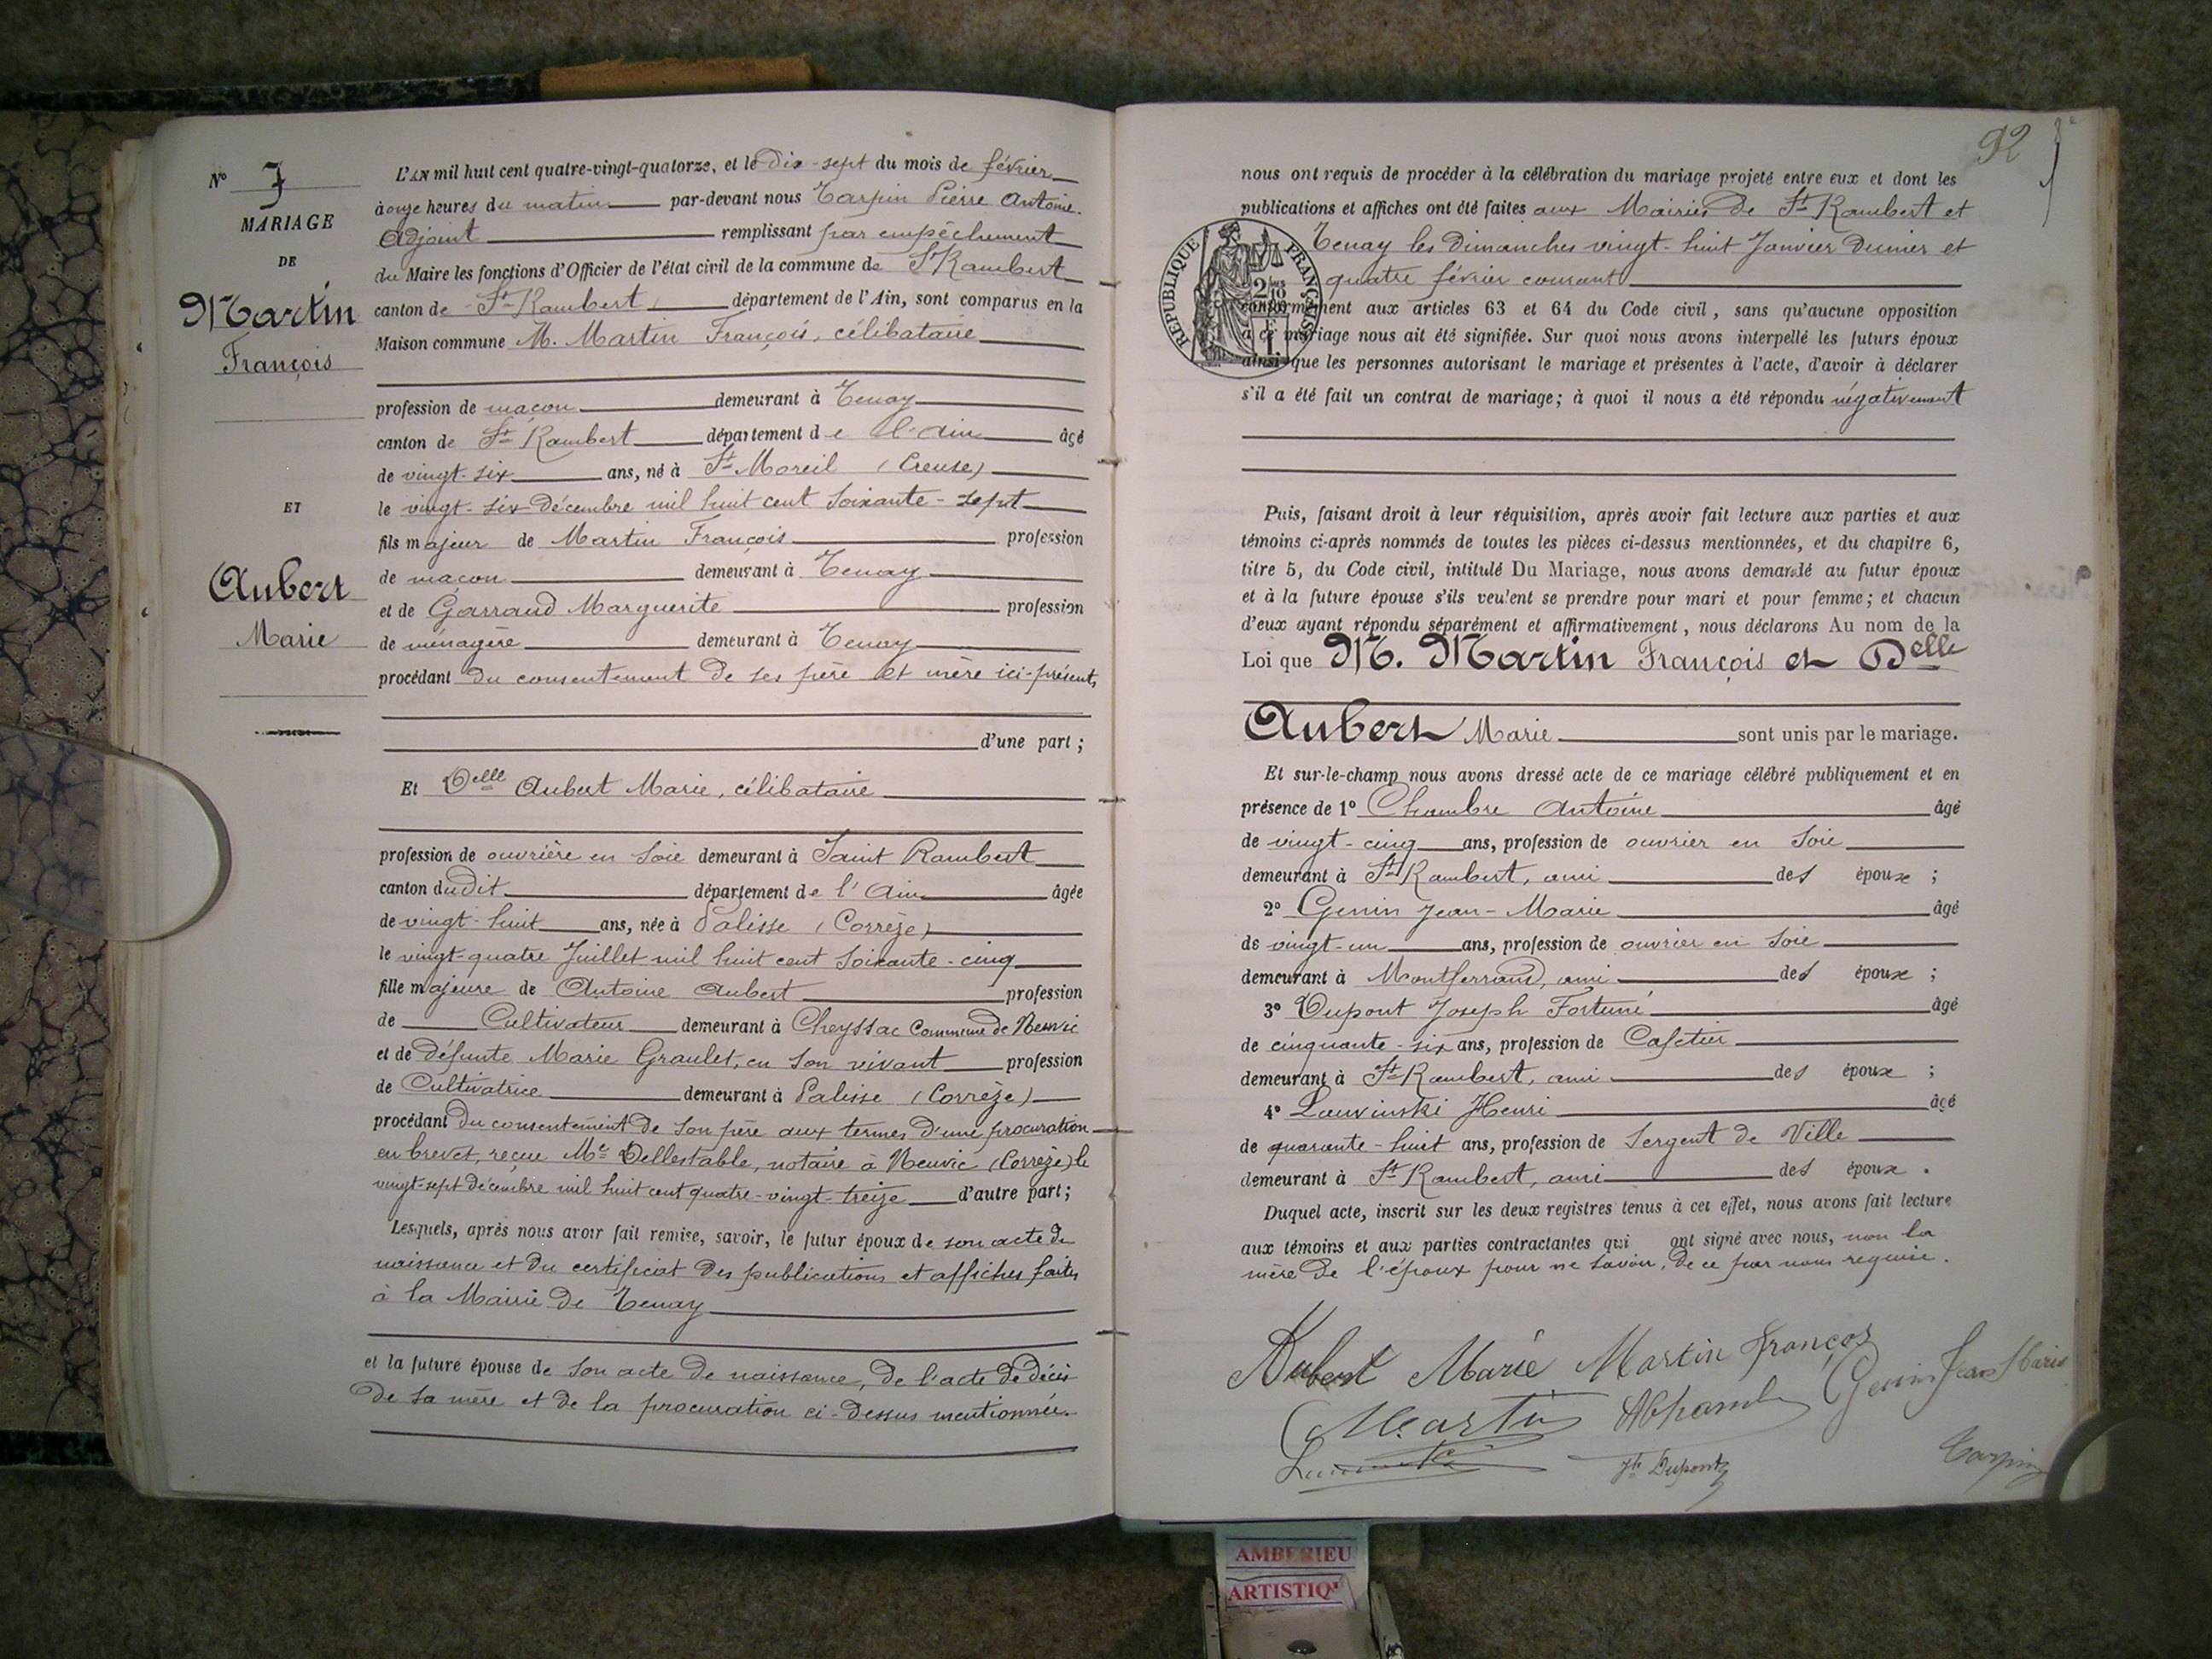 N° 7
MARIAGE
DE
Martin
François
ET
Aubert
Marie
L'AN mil huit cent quatre-vingt-quatorze, et le dix-sept du mois de février
à onze heures du matin par-devant nous Tarpin Pierre Antoine.
Adjoint remplissant par empêchement
du Maire les fonctions d'Officier de l'état civil de la commune de St Rambert
canton de St Rambert, département de l'Ain, sont comparus en la
Maison commune M. Martin François, célibataire
profession de maçon demeurant à Tenay
canton de St Rambert département de l'Ain âgé
de vingt-six ans, né à St Moreil (Creuse)
le vingt-six décembre mil huit cent soixante-sept
fils majeur de Martin François profession
de maçon demeurant à Tenay
et de Garraud Marguerite profession
de ménagère demeurant à Tenay
procédant du consentement de ses père et mère ici-présents
d'une part ;
Et Delle Aubert Marie, célibataire
profession de ouvrière en soie demeurant à Saint Rambert
canton dudit département de l'Ain âgée
de vingt-huit ans, née à Palisse (Corrèze)
le vingt-quatre Juillet mil huit cent soixante-cinq
fille majeure de Antoine Aubert profession
de Cultivateur demeurant à Cheyssac Commune de Neuvic
et de défunte Marie Graulet, en son vivant profession
de Cultivatrice demeurant à Palisse (Corrèze)
procédant du consentement de son père aux termes d'une procuration
en brevet, reçue Me Dellestable, notaire à Neuvic (Corrèze) le
vingt-sept décembre mil huit cent quatre-vingt-treize d'autre part ;
Lesquels, après nous avoir fait remise, savoir, le futur époux de son acte de
naissance et du certificat des publications et affiches faites
à la Mairie de Tenay
et la future épouse de son acte de naissance, de l'acte de décès
de sa mère et de la procuration ci-dessus mentionnée.
92
nous ont requis de procéder à la célébration du mariage projeté entre eux et dont les
publications et affiches ont été faites aux Mairies de St Rambert et
Tenay les dimanches vingt-huit Janvier dernier et
quatre février courant
RÉPUBLIQUE FRANÇAISE
conformément aux articles 63 et 64 du Code civil, sans qu'aucune opposition
à ce mariage nous ait été signifiée. Sur quoi nous avons interpellé les futurs époux
ainsi que les personnes autorisant le mariage et présentes à l'acte, d'avoir à déclarer
s'il a été fait un contrat de mariage ; à quoi il nous a été répondu négativement
Puis, faisant droit à leur réquisition, après avoir fait lecture aux parties et aux
témoins ci-après nommés de toutes les pièces ci-dessus mentionnées, et du chapitre 6,
titre 5, du Code civil, intitulé Du Mariage, nous avons demandé au futur époux
et à la future épouse s'ils veulent se prendre pour mari et pour femme ; et chacun
d'eux ayant répondu séparément et affirmativement, nous déclarons Au nom de la
Loi que M. Martin François et Delle
Aubert Marie sont unis par le mariage.
Et sur-le-champ nous avons dressé acte de ce mariage célébré publiquement et en
présence de 1° Chambre Antoine âgé
de vingt-cinq ans, profession de ouvrier en soie
demeurant à St Rambert, ami des époux ;
2° Genin Jean-Marie âgé
de vingt-un ans, profession de ouvrier en soie
demeurant à Montferrand, ami des époux ;
3° Dupont Joseph Fortuné âgé
de cinquante-six ans, profession de Cafetier
demeurant à St Rambert, ami des époux ;
4° Lauvinski Henri âgé
de quarante-huit ans, profession de Sergent de Ville
demeurant à St Rambert, ami des époux.
Duquel acte, inscrit sur les deux registres tenus à cet effet, nous avons fait lecture
aux témoins et aux parties contractantes qui ont signé avec nous, non la
mère de l'époux pour ne savoir, de ce par nous requise.
Aubert Marie Martin François
Genin Jean Marie
Martin
Jh Dupont
Tarpin
AMBERIEU
ARTISTIQ